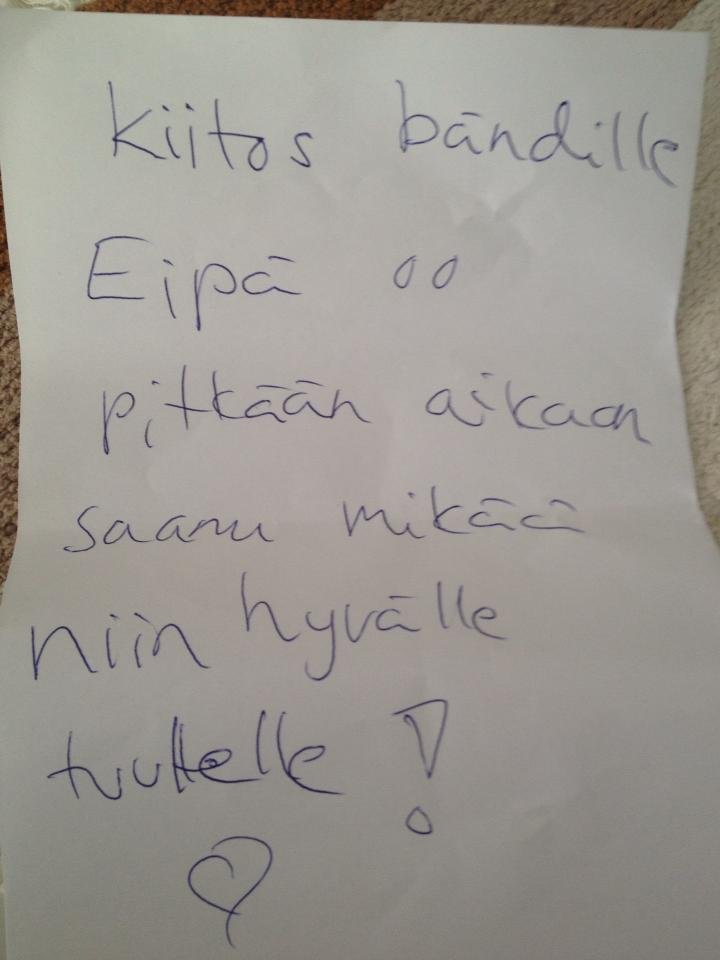 Kiitos bändille
Eipä oo
pitkään aikaan
saanu mikää
niin hyvälle
tuulelle!